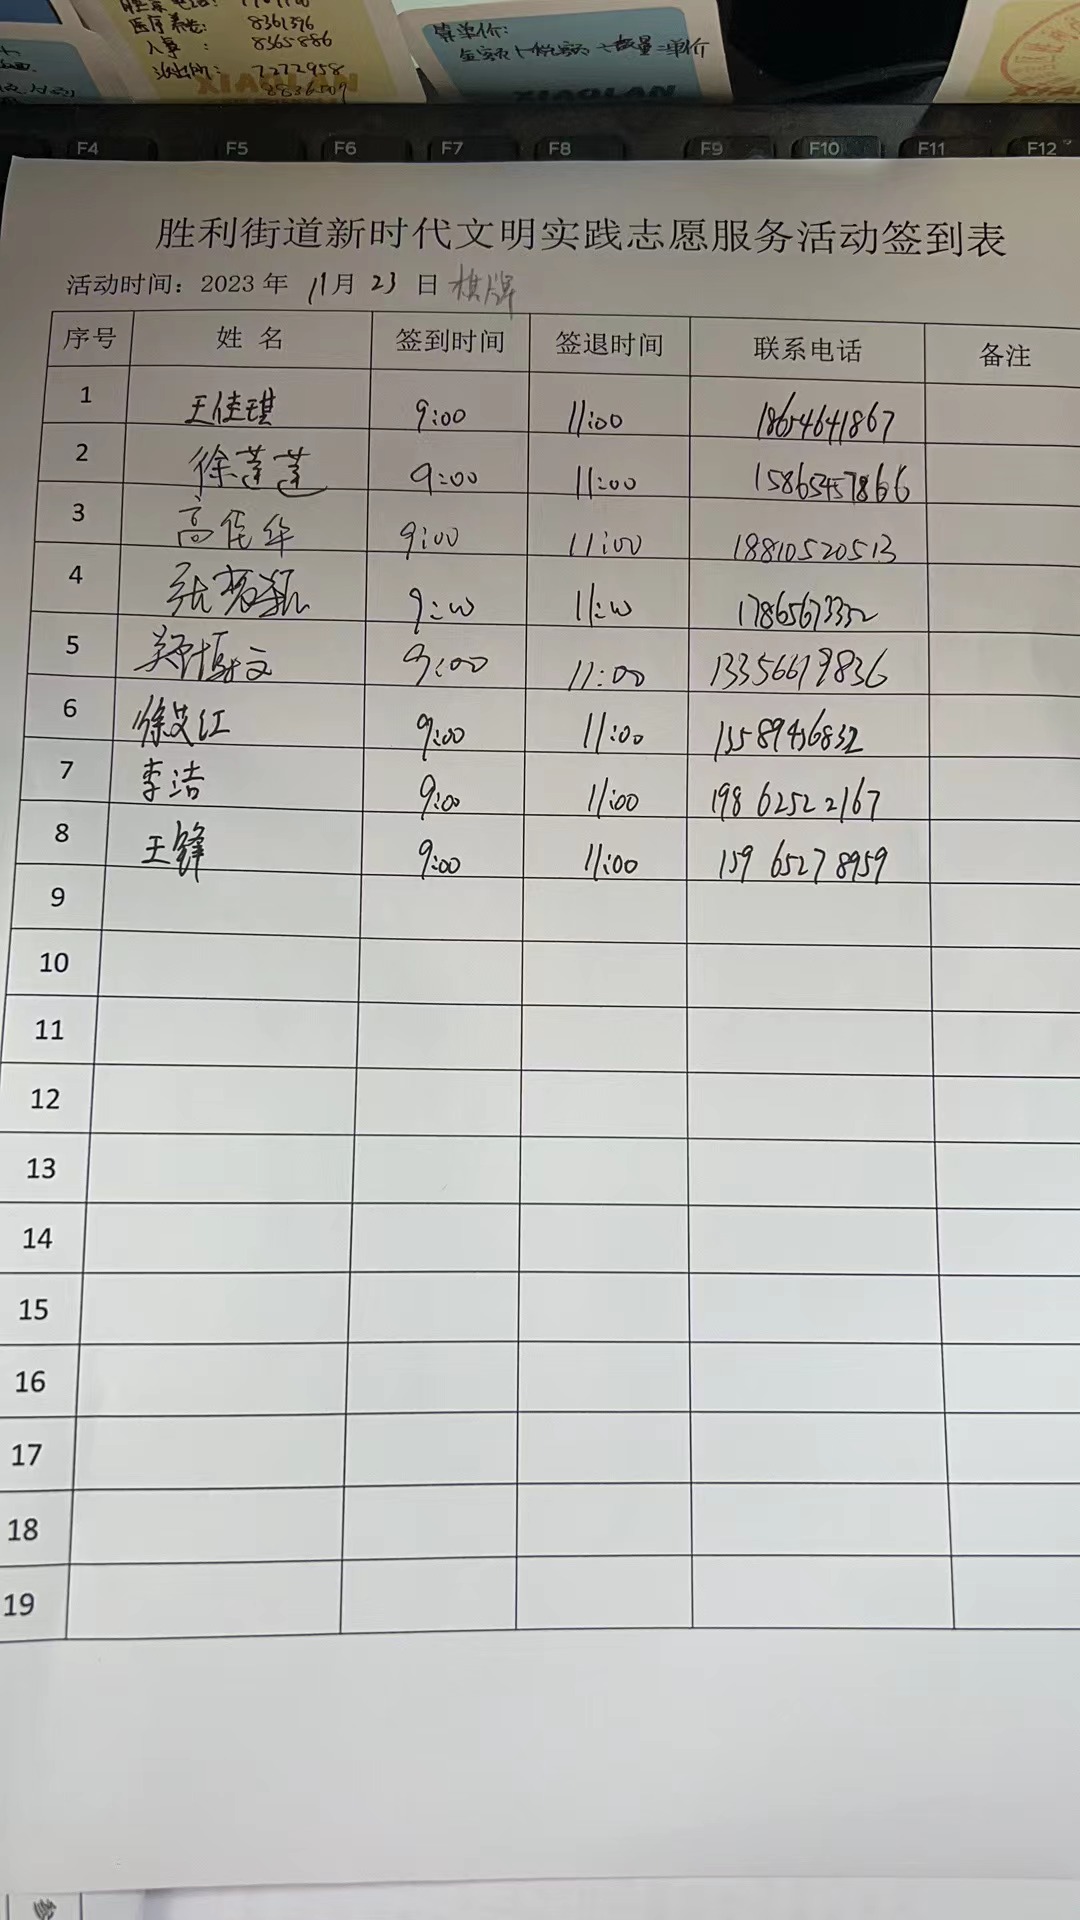 医疗养老: 8361376
人事 : 8365886
派出所: 7272958
8836507
XIAOLAN
算单价:
金额+税额÷数量=单价
XIAOLAN
F4 F5 F6 F7 F8 F9 F10 F11 F12
胜利街道新时代文明实践志愿服务活动签到表
活动时间：2023 年 11月 23 日 棋牌
序号 姓 名 签到时间 签退时间 联系电话 备注
1 王佳琪 9:00 11:00 18654641867
2 徐莲莲 9:00 11:00 15865457866
3 高佳华 9:00 11:00 18810520513
4 9:00 11:00 17865673332
5 郑博文 9:00 11:00 13356619836
6 徐艾红 9:00 11:00 13589456832
7 李洁 9:00 11:00 198 6252 2167
8 王锋 9:00 11:00 159 6527 8959
9
10
11
12
13
14
15
16
17
18
19